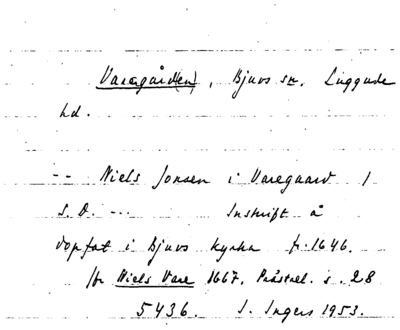 Varagård(en), Bjuvs sn. Luggude
hd.
-- Niels Jonsen i Varegaard /
S. D. -- Inskrift å
dopfat i Bjuvs kyrka fr. 1646.
Niels Vare 1667. Prästrel. s. 28
5436. I. Ingers 1953.